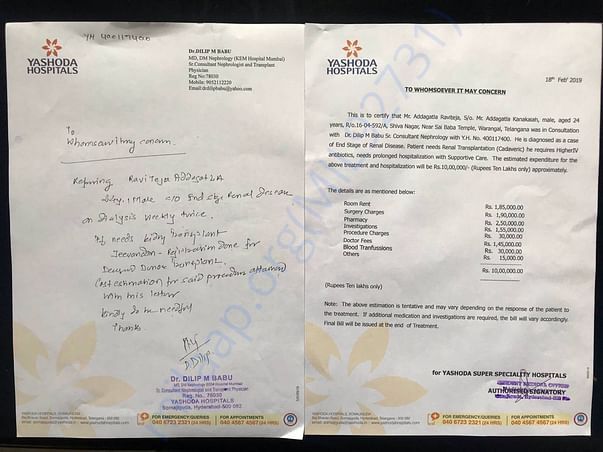 YH 400117400
YASHODA
HOSPITALS
Dr.DILIP M BABU
MD, DM Nephrology (KEM Hospital Mumbai)
Sr.Consultant Nephrologist and Transplant
Physician
Reg No:78030
Mobile: 9052112220
Email:drdilipbabu@yahoo.com
To
Whomsoever it my concern.
Refering Ravi Teja Addagatla
24y, Male c/o End stage Renal Disease
on dialysis weekly twice.
He needs kidney transplant
Jeevandan - Registration done for
Deceased Donor transplant.
Cost estimation for said procedure attached
with this letter
kindly do the needful
Thanks.
D.Dilip
Dr. DILIP M BABU
MD, DM Nephrology (KEM Hospital Mumbai)
Sr.Consultant Nephrologist and Transplant Physician
Reg. No.: 78030
YASHODA HOSPITALS
Somajiguda, Hyderabad-500 082
YASHODA HOSPITALS, SOMAJIGUDA
FOR EMERGENCY/QUERIES
040 6723 2321 (24 HRS)
FOR APPOINTMENTS
040 4567 4567 (24 HRS)
YASHODA
HOSPITALS
18th Feb' 2019
TO WHOMSOEVER IT MAY CONCERN
This is to certify that Mr. Addagatla Raviteja, S/o. Mr. Addagatla Kanakaiah, male, aged 24
years, R/o.16-04-592/A, Shiva Nagar, Near Sai Baba Temple, Warangal, Telangana was in Consultation
with Dr. Dilip M Babu Sr. Consultant Nephrology with Y.H. No. 400117400. He is diagnosed as a case
of End Stage of Renal Disease. Patient needs Renal Transplantation (Cadaveric) he requires HigherIV
antibiotics, needs prolonged hospitalization with Supportive Care. The estimated expenditure for the
above treatment and hospitalization will be Rs.10,00,000/- (Rupees Ten Lakhs only) approximately.
The details are as mentioned below:
Room Rent Rs. 1,85,000.00
Surgery Charges Rs. 1,90,000.00
Pharmacy Rs. 2,50,000.00
Investigations Rs. 1,55,000.00
Procedure Charges Rs. 30,000.00
Doctor Fees Rs. 1,45,000.00
Blood Tranfussions Rs. 30,000.00
Others Rs. 15,000.00
Rs. 10,00,000.00
(Rupees Ten Lakhs only)
Note: The above estimation is tentative and may vary depending on the response of the patient to
the treatment. If additional medication and investigations are required, the bill will vary accordingly.
Final Bill will be issued at the end of Treatment.
for YASHODA SUPER SPECIALITY HOSPITALS
AUTHORISED SIGNATORY
YASHODA HOSPITALS, SOMAJIGUDA
FOR EMERGENCY/QUERIES
040 6723 2321 (24 HRS)
FOR APPOINTMENTS
040 4567 4567 (24 HRS)